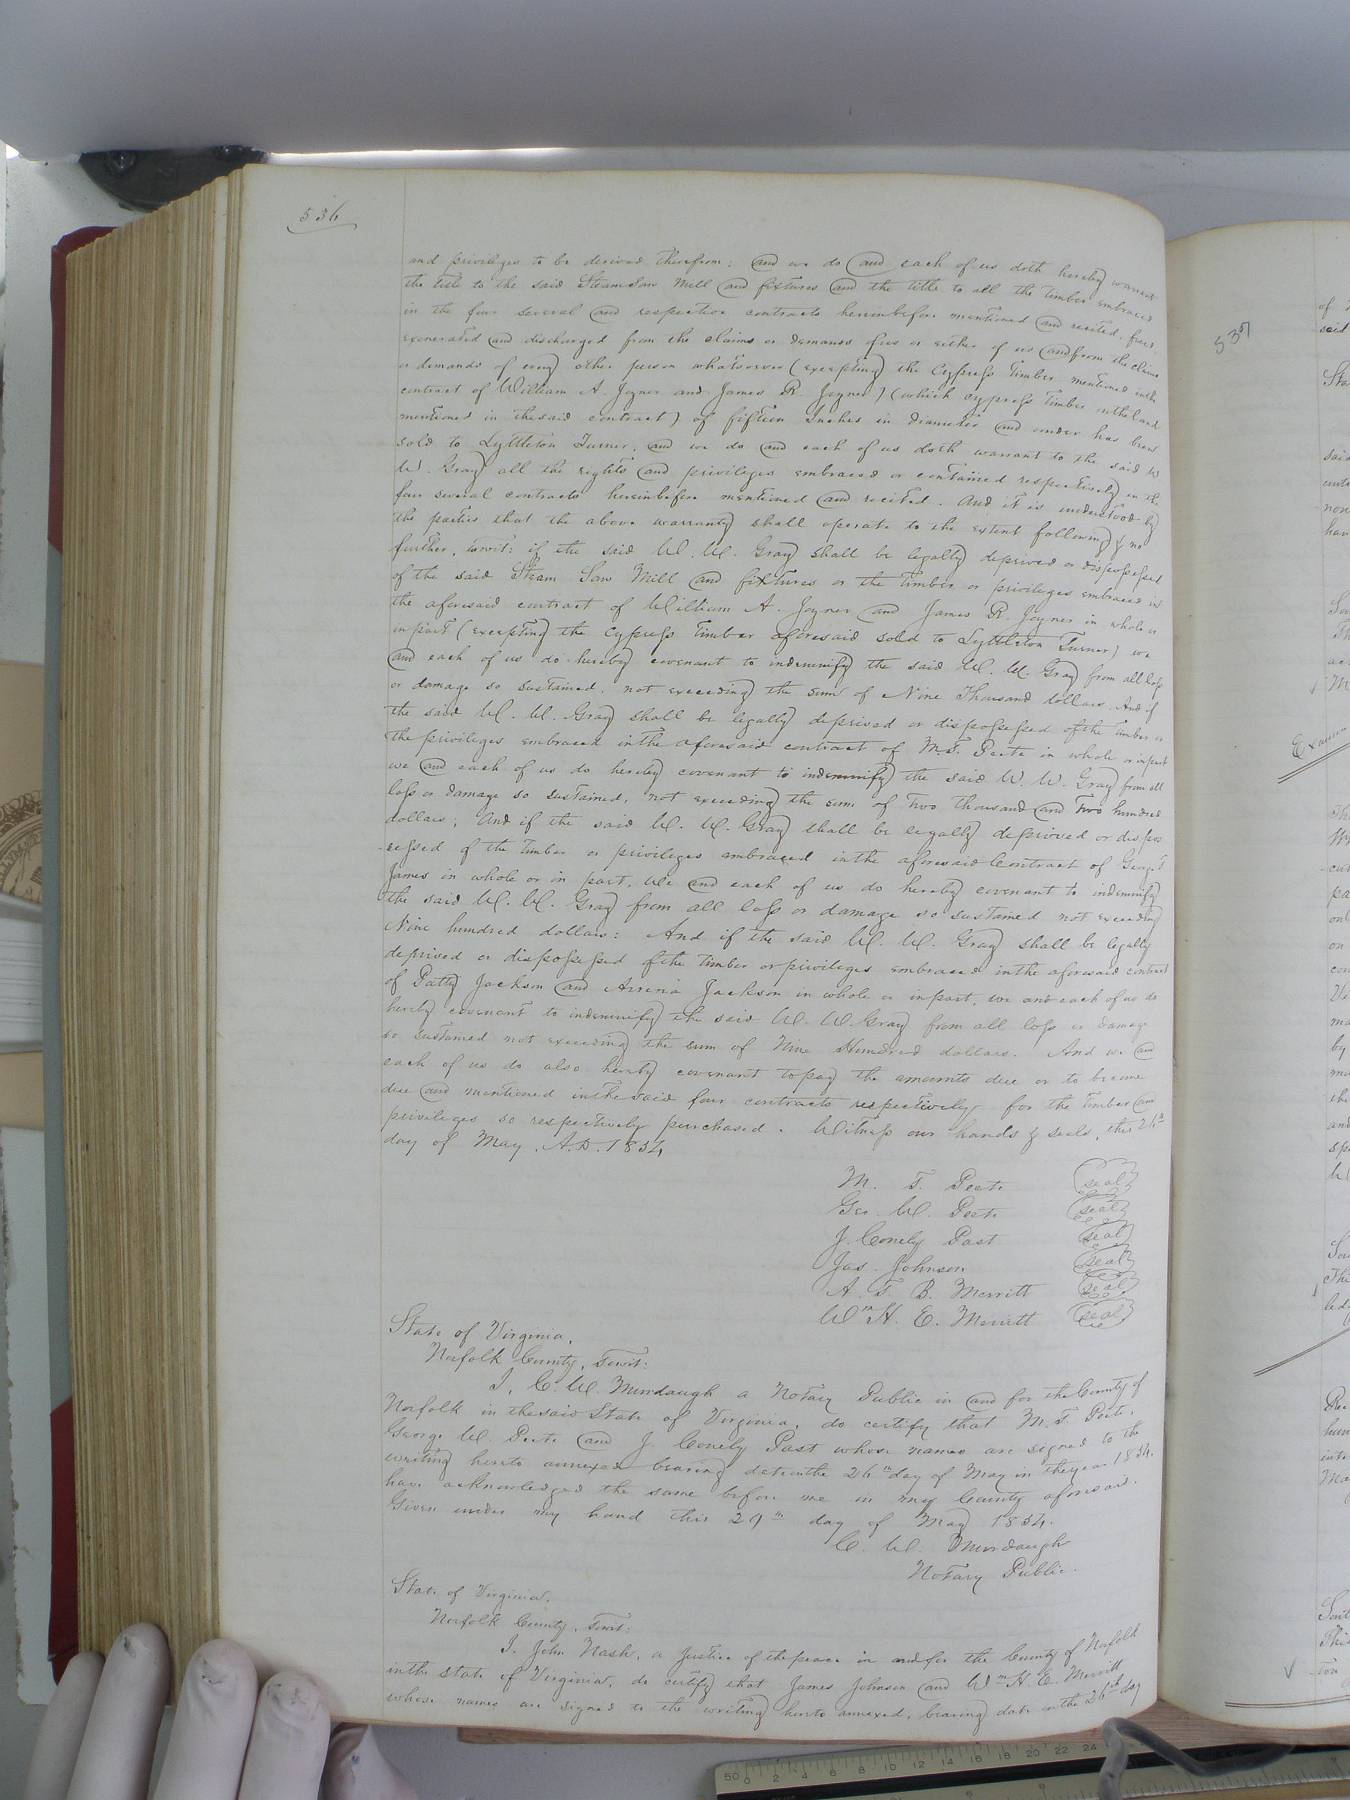 536
and privileges to be derived therefrom: and we do and each of us doth hereby warrant
the title to the said Steam Saw Mill and fixtures and the title to all the timber embraced
in the four several and respective contracts hereinbefore mentioned and recited, freed,
exonerated and discharged from the claims or demands of us or either of us and from the claims
or demands of every other person whatsoever (excepting the Cypress Timber mentioned in the
contract of William A. Joyner and James R. Joyner) (which cypress timber on the land
mentioned in the said contract) of fifteen Inches in diameter and under has been
sold to Lyttleton Turner, and we do and each of us doth warrant to the said W
W. Gray all the rights and privileges embraced or contained respectively in the
four several contracts hereinbefore mentioned and recited. And it is understood by
the parties that the above warranty shall operate to the extent following & no
further, towit: if the said W. W. Gray shall be legally deprived or dispossessed
of the said Steam Saw Mill and fixtures or the timber or privileges embraced in
the aforesaid contract of William A. Joyner and James R. Joyner in whole or
in part (excepting the cypress timber aforesaid sold to Lyttleton Turner) we
and each of us do hereby covenant to indemnify the said W. W. Gray from all loss
or damage so sustained, not exceeding the sum of Nine Thousand dollars. And if
the said W. W. Gray shall be legally deprived or dispossessed of the timber or
the privileges embraced in the aforesaid contract of M. T. Peete in whole or in part
we and each of us do hereby covenant to indemnify the said W. W. Gray from all
loss or damage so sustained, not exceeding the sum of two thousand and two hundred
dollars; And if the said W. W. Gray shall be legally deprived or dispos
-sessed of the timber or privileges embraced in the aforesaid Contract of George T
James in whole or in part, we and each of us do hereby covenant to indemnify
the said W. W. Gray from all loss or damage so sustained not exceeding
Nine hundred dollars: And if the said W. W. Gray shall be legally
deprived or dispossessed of the timber or privileges embraced in the aforesaid contract
of Patty Jackson and Arrena Jackson in whole or in part, we and each of us do
hereby covenant to indemnify the said W. W. Gray from all loss or damage
so sustained not exceeding the sum of Nine Hundred dollars. And we and
each of us do also hereby covenant to pay the amounts due or to become
due and mentioned in the said four contracts respectively for the timber and
privileges so respectively purchased. Witness our hands & seals, this 26th
day of May, A.D. 1854
M. T. Peete seal
Geo. W. Peete seal
J. Conely Past seal
Jas. Johnson seal
A. T. B. Merritt seal
Wm H. E. Merritt seal
State of Virginia,
Norfolk County, towit:
I, C. W. Murdaugh a Notary Public in and for the County of
Norfolk in the said State of Virginia, do certify that M. T. Peete,
George W. Peete and J. Conely Past whose names are signed to the
writing hereto annexed bearing date on the 26th day of May in the year 1854.
have acknowledged the same before me in my County aforesaid.
Given under my hand this 29th day of May 1854.
C. W. Murdaugh
Notary Public.
State of Virginia.
Norfolk County, towit:
I. John Nash, a Justice of the peace in and for the County of Norfolk
in the state of Virginia, do certify that James Johnson and Wm H. E. Merritt
whose names are signed to the writing hereto annexed, bearing date on the 26th day
537